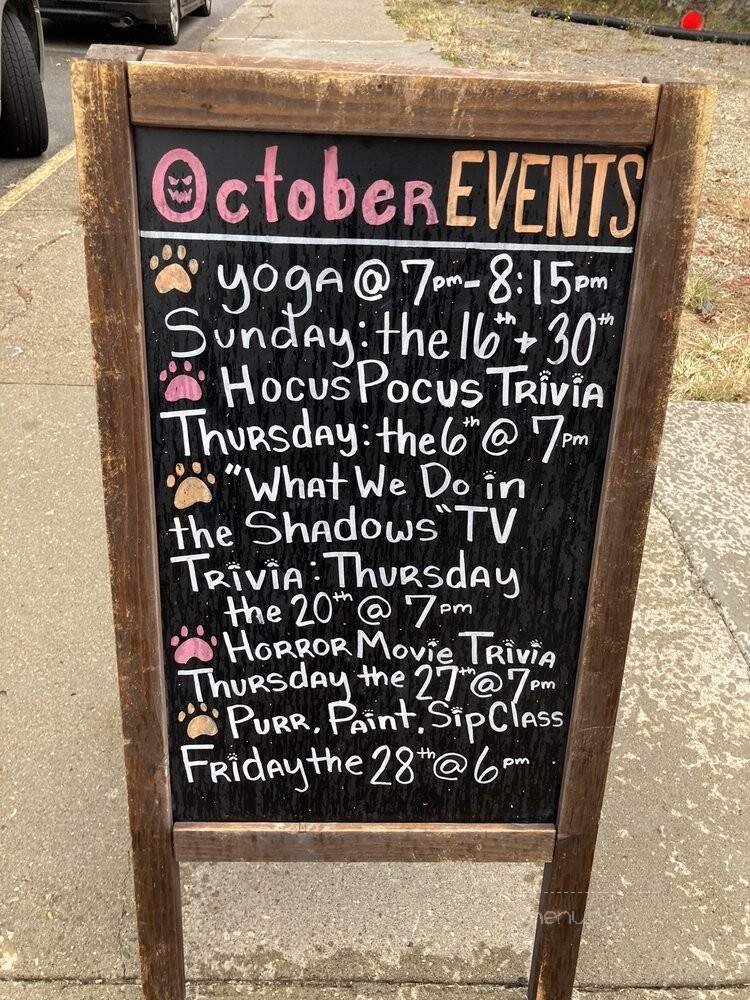 October EVENTS
yoga @ 7pm-8:15pm
Sunday: the 16th + 30th
Hocus Pocus Trivia
Thursday: the 6th @ 7pm
"What We Do in
the Shadows" TV
Trivia: Thursday
the 20th @ 7pm
Horror Movie Trivia
Thursday the 27th @ 7pm
Purr, Paint, Sip Class
Friday the 28th @ 6pm